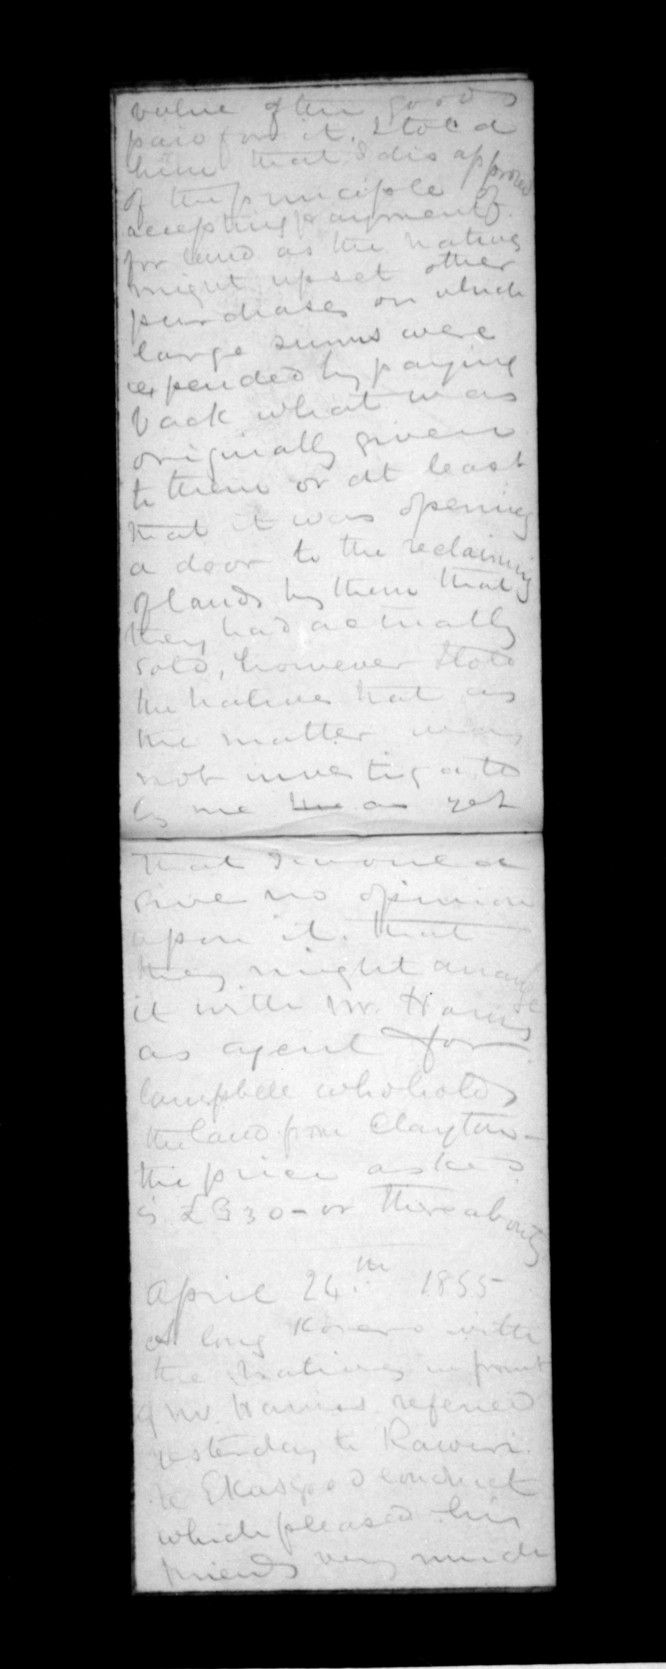 value of the goods
paid for it. I told
him that I disapproved
of the principle of
accepting payment
for land as the natives
might upset other
purchases on which
large sums were
expended by paying
back what was
originally given
to them or at least
that it was opening
a door to the reclaiming
of lands by them that
they had actually
sold, however I told
the natives that as
the matter was
not investigated
by me as yet
that I would
give no opinion
upon it. that
they might arrange
it with Mr. Harris
as agent for
Campbell who holds
the land from Clayton -
the price asked
is £330 - or thereabouts
April 24th 1855
A long Korero with
the natives in front
of Mr Harris referred
yesterday to Rawiri
conduct
which pleased his
friends very much